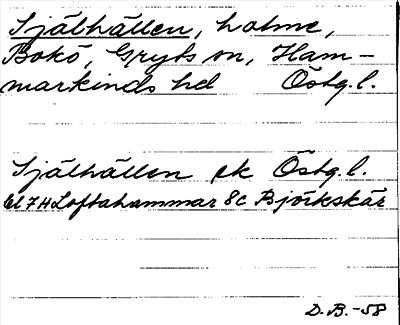 Själhällen, holme,
Bokö, Gryts sn, Ham-
markinds hd Östg.l.
Själhällen ek Östg.l.
bl 7H Loftahammar 8c Björkskär
D.B.-58